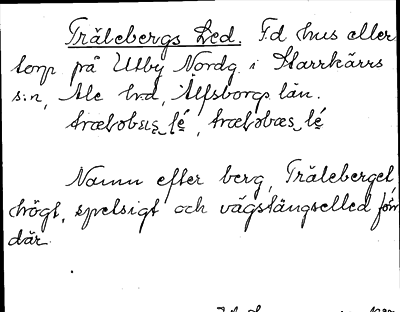 Trälebergs Led. Fd hus eller
torp på Utby Nordg. i Starrkärrs
s:n, Ale hd, Älfsborgs län.
Namn efter berg, Träleberget,
högt, spetsigt och vägstängselled förr
där.